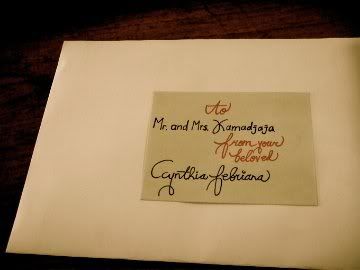 to
Mr. and Mrs. Kamadjaja
from your
beloved
Cynthia Febriana